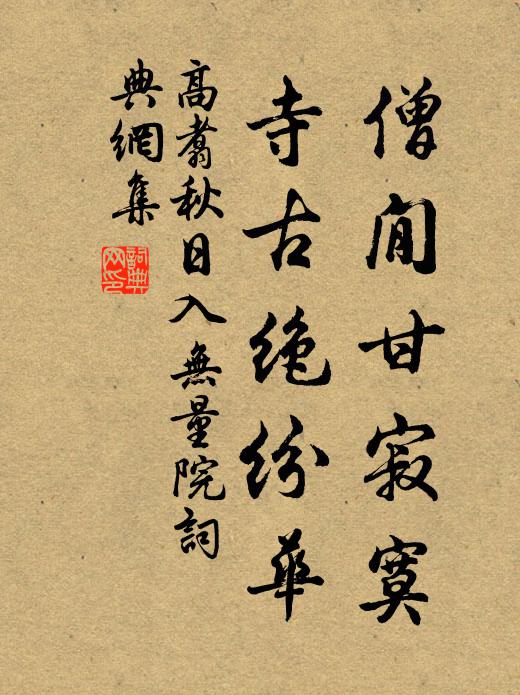 僧閒甘寂寞
寺古絶紛華
高翥秋日入無量院詞
典網集
詞典
网印